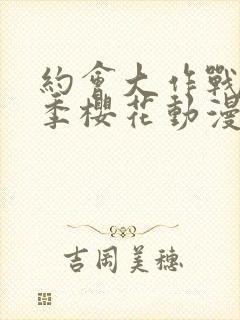 約會大作戰
季櫻花動漫
吉岡美穗